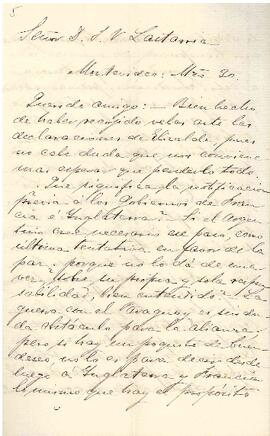 5
Señor D. J. V. Lastarria
Montevideo: Mzo 20.
Querido amigo: — Bien hecho
de haber recojido velas ante las
declaraciones de Elizalde, pues
no cabe duda que nos conviene
mas esperar que perderlo todo.
Qué significa la notificacion
prévia á los Gobiernos de Fran
cia é Inglaterra? Si el Arjen
tino cree necesario ese paso, como
última tentativa en favor de la
paz, porqué no lo dá de una
vez, sobre su propia y sola respon
sabilidad, bien entendido? La
guerra con el Paraguay es sin du
da obstáculo para la alianza;
pero si hay un poquito de buen
deseo, no lo es para decir desde
luego á Inglaterra y Francia
lo mismo que hay el propósito